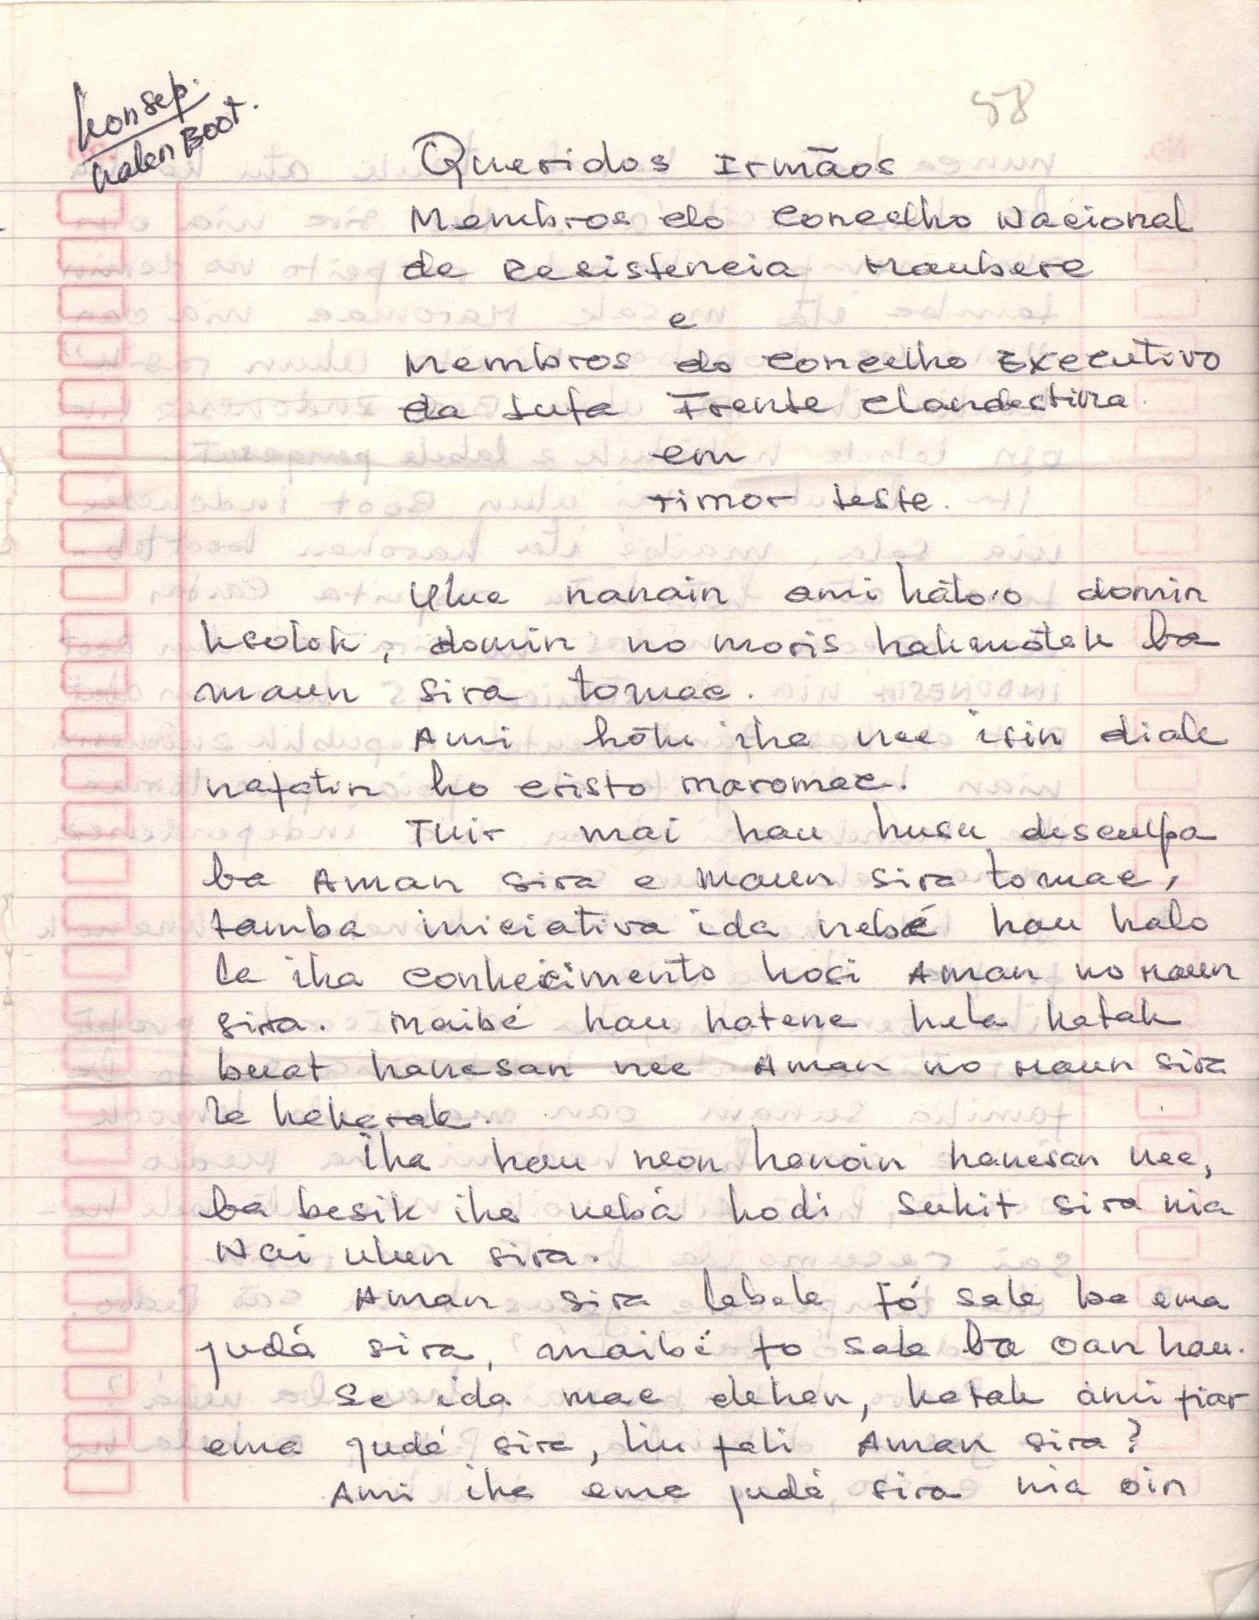 58
Konsep.
nalen Boot.
Queridos Irmãos
Membros do Concelho Nacional
de Resistencia Maubere
e
Membros do Concelho Executivo
da Luta Frente Clandestina
em
Timor Leste.
Uluc nanain ami háto'o domin
ksolok, domin no moris hakmátek ba
maun sira tomac.
Ami hótu iha nee isin diak
nafatin ho Cristo Maromac.
Tuir mai hau husu desculpa
ba Aman sira e maun sira tomac,
tamba iniciativa ida nebé hau halo
la iha conhecimento hosi Aman no Maun
sira. Maibé hau hatene hela katak
buat hanesan nee Aman no Maun sira
la hakarak.
Iha hau neon hanoin hanesan nee,
ba besik iha nebá hodi sukit sira nia
Nai ulun sira.
Aman sira labele fó sala ba ema
judá sira, maibé fo sala ba oan hau.
Se ida mac dehen, katak ami fiar
ema judá sira, liu fali Aman sira?
Ami iha ema judá sira nia oin